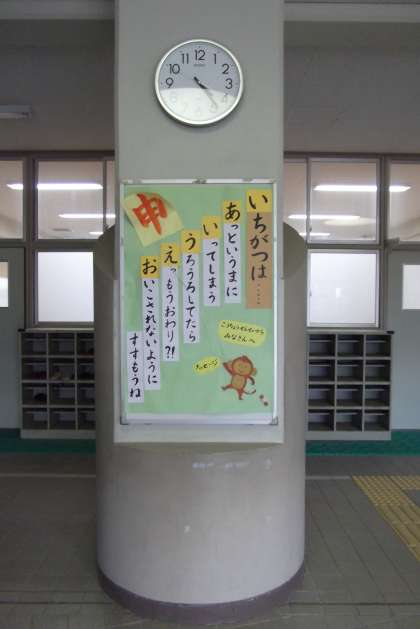 12
1
2
3
4
5
6
7
8
9
10
11
申
いちがつは……
あっというまに
いってしまう
うろうろしてたら
えっもうおわり?!
おいこされないように
すすもうね
こうちょうせんせいから
みなさんへ